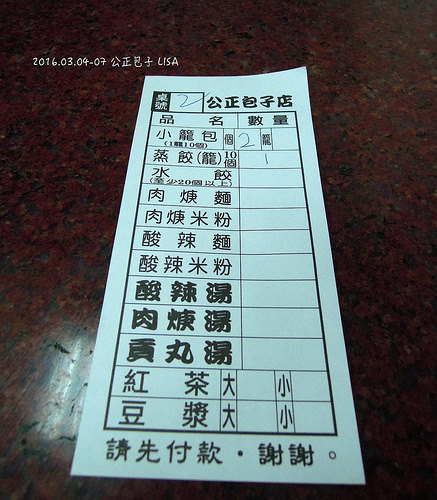 2016.03.04-07 公正包子 LISA
桌號 2 公正包子店
品名 數量
小籠包 個 2 籠
(1籠10個)
蒸餃(籠)10個 1
水餃
(至少20個以上)
肉焿麵
肉焿米粉
酸辣麵
酸辣米粉
酸辣湯
肉焿湯
貢丸湯
紅茶 大 小
豆漿 大 小
請先付款・謝謝。